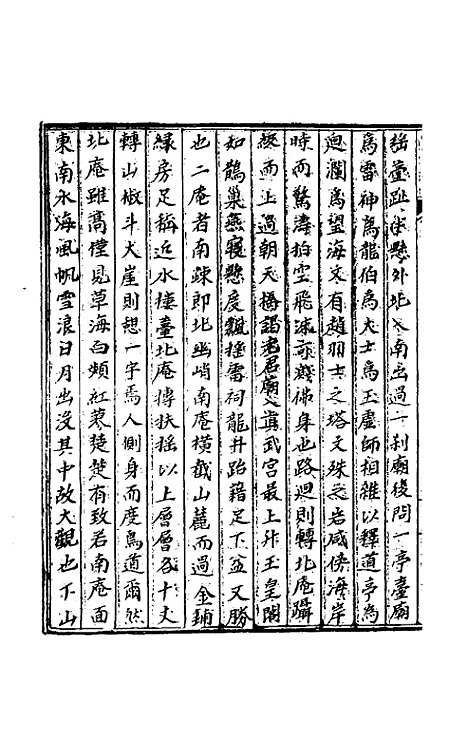 趾半懸外北入南出過一刹廟後間一亭臺廟
爲雷神爲龍伯爲大士爲玉虛師相雜以釋道亭爲
迴瀾爲望海又有趙羽士之塔文殊之岩咸俟海岸
時而驚濤拍空飛沫濺佛身也路迴則轉北庵躡
級而上過朝天橋謁老君廟又眞武宮最上升玉皇閣
如鵲巢無寢懸度飄搖雷祠龍井跆藉足下益又勝
也二庵者南疎即北幽峭南庵橫截山麓而過金鋪
綠房足稱近水樓臺北庵摶扶搖以上層層各十丈
轉山椒斗大崖則想一字焉人側身而度鳥道爾然
北庵雖高僅見草海白蘋紅蓼楚楚有致若南庵面
東南水海風帆雪浪日月出沒其中故大觀也下山